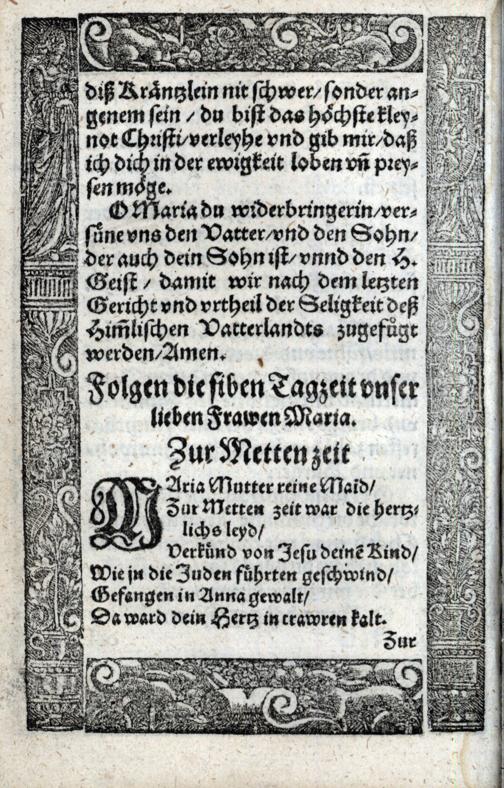 diß Kräntzlein nit schwer/ sonder an-
genem sein / du bist das höchste kley-
not Christi/ verleyhe vnd gib mir/ daß
ich dich in der ewigkeit loben vñ prey-
sen möge.
O Maria du widerbringerin/ ver-
süne vns den Vatter/ vnd den Sohn/
der auch dein Sohn ist/ vnnd den H.
Geist / damit wir nach dem letzten
Gericht vnd vrtheil der Seligkeit deß
Him̃lischen Vatterlandts zugefügt
werden/ Amen.
Folgen die siben Tagzeit vnser
lieben Frawen Maria.
Zur Metten zeit
MAria Mutter reine Maid/
Zur Metten zeit war die hertz-
lichs leyd/
Verkünd von Jesu deinẽ Kind/
Wie jn die Juden führten geschwind/
Gefangen in Anna gewalt/
Da ward dein Hertz in trawren kalt.
Zur